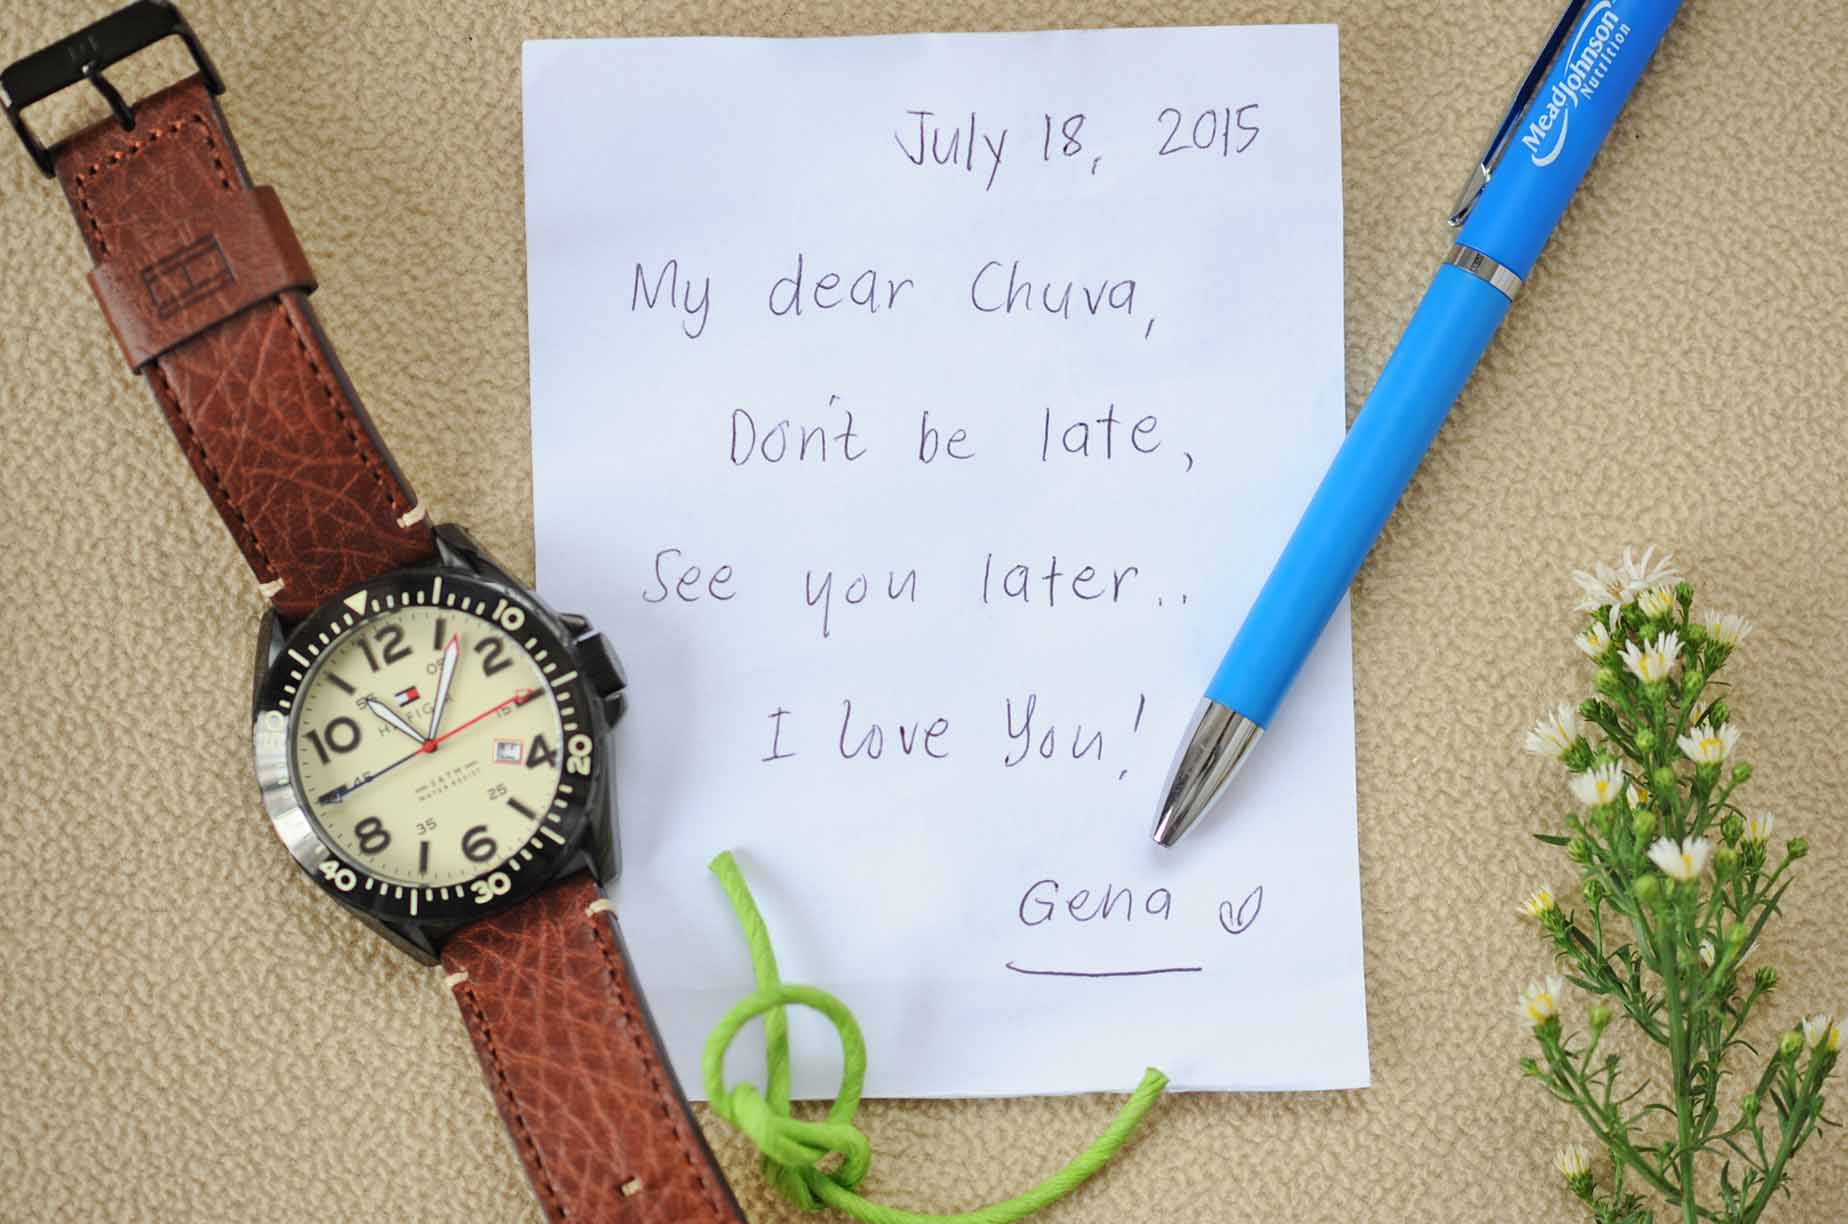 July 18, 2015
My dear Chuva,
Don't be late,
See you later..
I love You!
Gena
MeadJohnson
Nutrition
12
1
2
4
6
8
10
05
15
25
35
45
55
HILFIGER
5 ATM
WATER RESIST
10
20
30
40